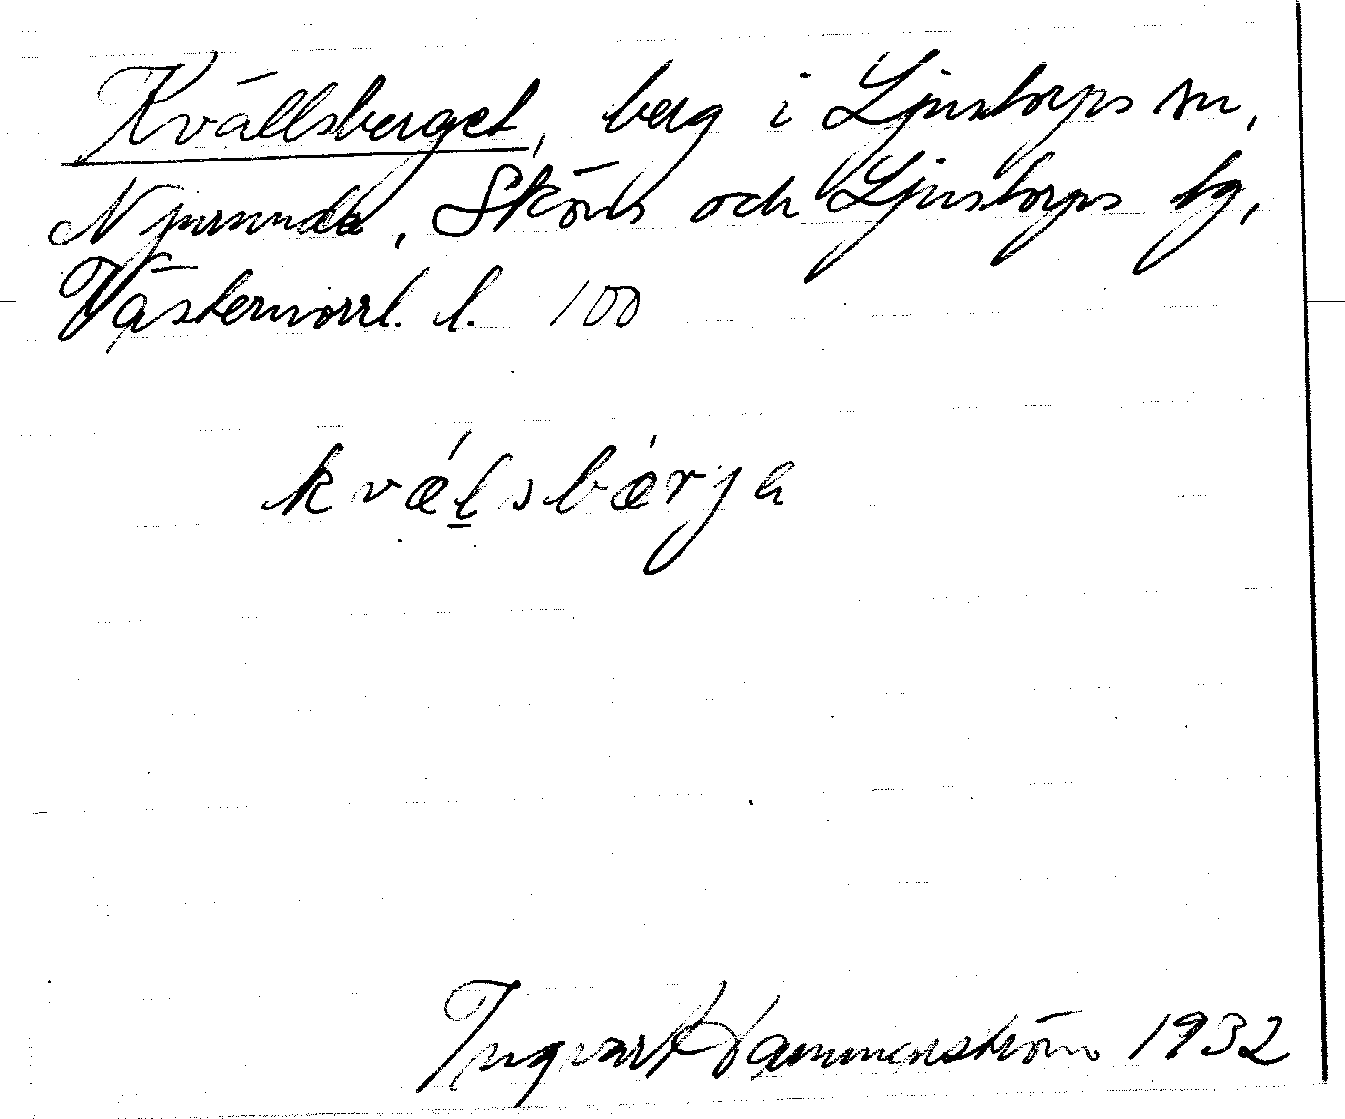 Kvällsberget, berg i Ljustorps sn,
Njurunda, Sköns och Ljustorps tg,
Västernorrl. l. 100
kvǽl̲sbǽrja
Ingvart Hammarström 1932